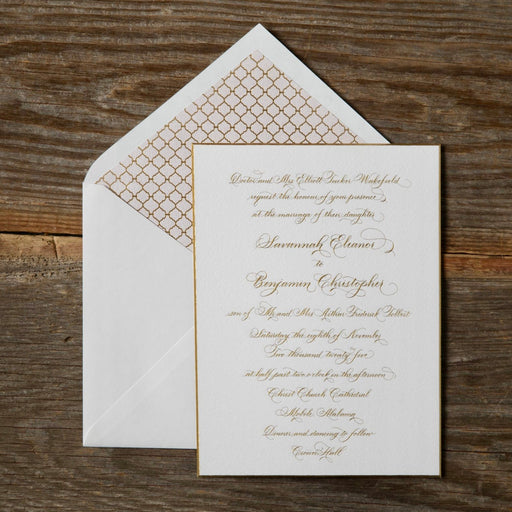 Doctor and Mrs Elliott Tucker Wakefield
request the honour of your presence
at the marriage of their daughter
Savannah Eleanor
to
Benjamin Christopher
son of Mr and Mrs Arthur Frederick Tolbert
Saturday the eighth of November
Two thousand twenty five
at half past two o'clock in the afternoon
Christ Church Cathedral
Mobile, Alabama
Dinner and dancing to follow
Hall